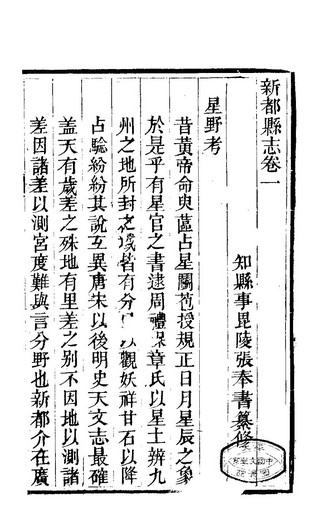 新都縣志卷一
知縣事毘陵張奉書纂修
星野考
昔黃帝命史區占星關苞授規正日月星辰之象
於是乎有星官之書逮周禮保章氏以星土辨九
州之地所封之域皆有分以觀妖祥甘石以降
占騐紛紛其說互異唐宋以後明史天文志最確
盖天有歲差之殊地有里差之别不因地以測諸
差因諸差以測宮度難與言分野也新都介在廣